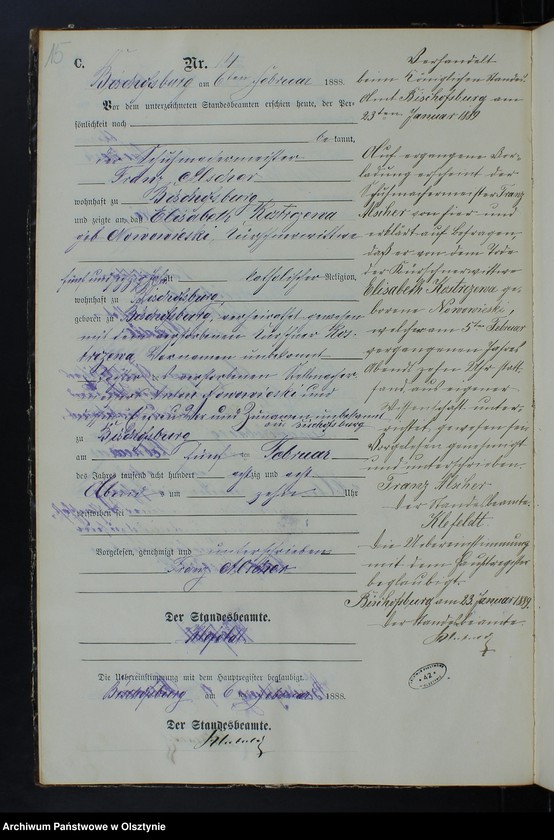 15
C.
Nr. 14
Bischofsburg am 6ten Februar 1888.
Vor dem unterzeichneten Standesbeamten erschien heute, der Per-
sönlichkeit nach
bekannt,
Schuhmachermeister
Franz Alscher
wohnhaft zu Bischofsburg
und zeigte an, daß Elisabeth Kostrzewa
geb. Nowowieski, Kürschnerwittwe
fünf und Jahre alt katholischer Religion,
wohnhaft zu Bischofsburg,
geboren zu Bischofsburg, verheirathet gewesen
mit dem verstorbenen Kürschner Kos-
trzewa, Vornamen unbekannt
verstorbenen
Anton Nowowieski und
Zunamen unbekannt
zu Bischofsburg
am fünften Februar
des Jahres tausend acht hundert achtzig und acht
Abends um zehn Uhr
verstorben sei
Vorgelesen, genehmigt und unterschrieben
Franz Alscher
Der Standesbeamte.
Klefeldt
Die Uebereinstimmung mit dem Hauptregister beglaubigt.
Bischofsburg am 6 Februar 1888.
Der Standesbeamte.
Verhandelt
beim Königlichen Standes-
Amt Bischofsburg am
23ten Januar 1889
Auf ergangene Vor-
ladung erscheint der
Schuhmachermeister Franz
Alscher von hier und
erklärt auf Befragen,
daß er von dem Tode
der Kürschnerwittwe
Elisabeth Kostrzewa ge-
borene Nowowieski,
welcher am 5ten Februar
vergangenen Jahres
Abends zehn Uhr statt-
fand, aus eigener
Wissenschaft unter-
richtet gewesen sei
Vorgelesen genehmigt
und unterschrieben.
Franz Alscher
Der Standesbeamte.
Klefeldt
Die Uebereinstimmung
mit dem Hauptregister
beglaubigt.
Bischofsburg am 23. Januar 1889.
Der Standesbeamte.
42
Archiwum Państwowe w Olsztynie